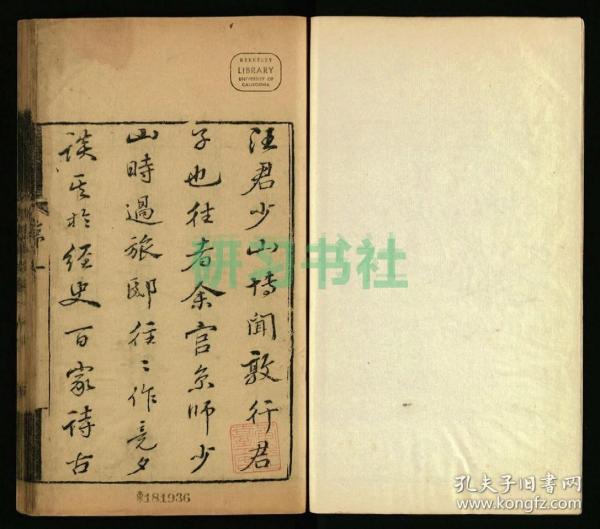 BERKELEY
LIBRARY
UNIVERSITY OF
CALIFORNIA
汪君少山博聞敦行君
子也往者余官京師少
山時過旅邸往〻作竟夕
談其於經史百家詩古
序一
181936
研习书社
孔夫子旧书网
www.kongfz.com